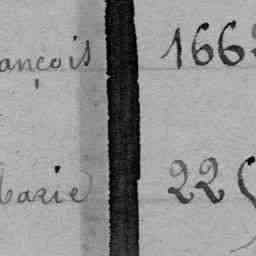 ançois 166
Marie 22